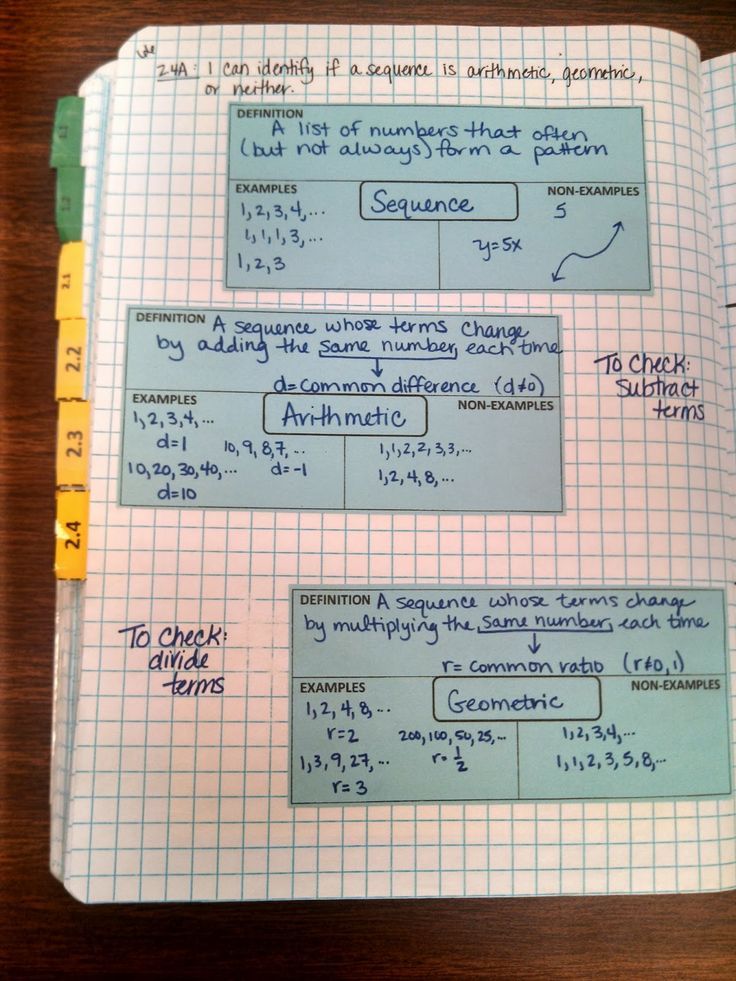 24A: I can identify if a sequence is arithmetic, geometric,
or neither.
DEFINITION
A list of numbers that often
(but not always) form a pattern
EXAMPLES
Sequence
NON-EXAMPLES
1, 2, 3, 4, ...
1, 1, 1, 3, ...
1, 2, 3
5
y=5x
DEFINITION A sequence whose terms change
by adding the same number, each time
d=common difference (d≠0)
To Check:
subtract
terms
EXAMPLES
Arithmetic
NON-EXAMPLES
1, 2, 3, 4, ...
d=1
10, 9, 8, 7, ...
d=-1
10, 20, 30, 40, ...
d=10
1, 1, 2, 2, 3, 3, ...
1, 2, 4, 8, ...
To Check:
divide
terms
DEFINITION A sequence whose terms change
by multiplying the same number, each time
r= common ratio (r≠0, 1)
EXAMPLES
Geometric
NON-EXAMPLES
1, 2, 4, 8, ...
r=2
200, 100, 50, 25, ...
r=1/2
1, 3, 9, 27, ...
r=3
1, 2, 3, 4, ...
1, 1, 2, 3, 5, 8, ...
1.1
1.2
2.1
2.2
2.3
2.4